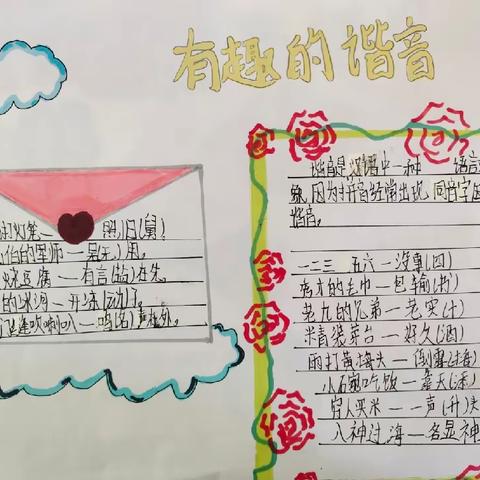 有趣的谐音
打灯笼——照旧(舅)
伯的军师——吴(无)用
烧豆腐——有言(盐)在先
的冰河——开冻(动)了
吹喇叭——鸣(名)声在外
谐音是汉语中一种 语言
象，因为拼音经常出现，同音字
谐音。
一二三 五六——没事(四)
孔夫的去巾——包输(书)
老九的兄弟——老实(十)
精装茅台——好久(酒)
雨打黄梅头——倒霉(梅)
小石磨吃饭——靠天(添)
穷人买米——一声(升)
八神过海——各显神